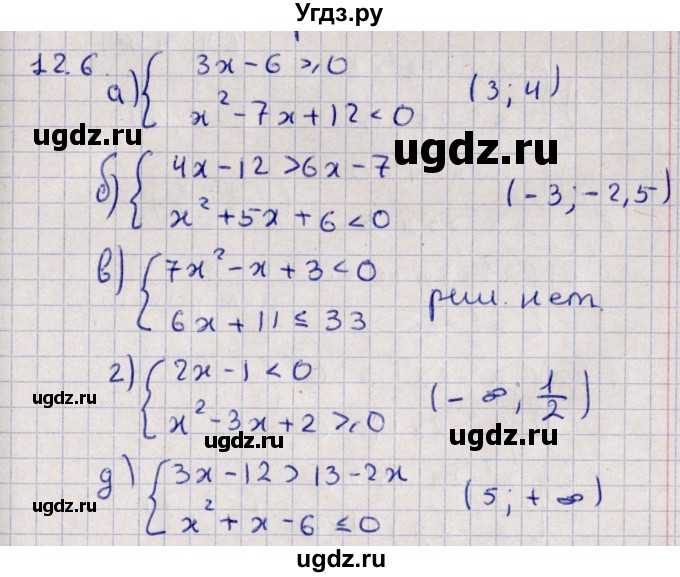 Угдз.ру
12.6
а) { 3x - 6 ⩾ 0
x² - 7x + 12 < 0
(3; 4)
ugdz.ru
ugdz.ru
б) { 4x - 12 > 6x - 7
x² + 5x + 6 < 0
(-3; -2,5)
ugdz.ru
в) { 7x² - x + 3 < 0
6x + 11 ≤ 33
реш. нет.
ugdz.ru
г) { 2x - 1 < 0
x² - 3x + 2 ⩾ 0
(-∞; 1/2)
ugdz.ru
ugdz.ru
д) { 3x - 12 > 13 - 2x
x² + x - 6 ≤ 0
(5; +∞)
ugdz.ru
ugdz.ru